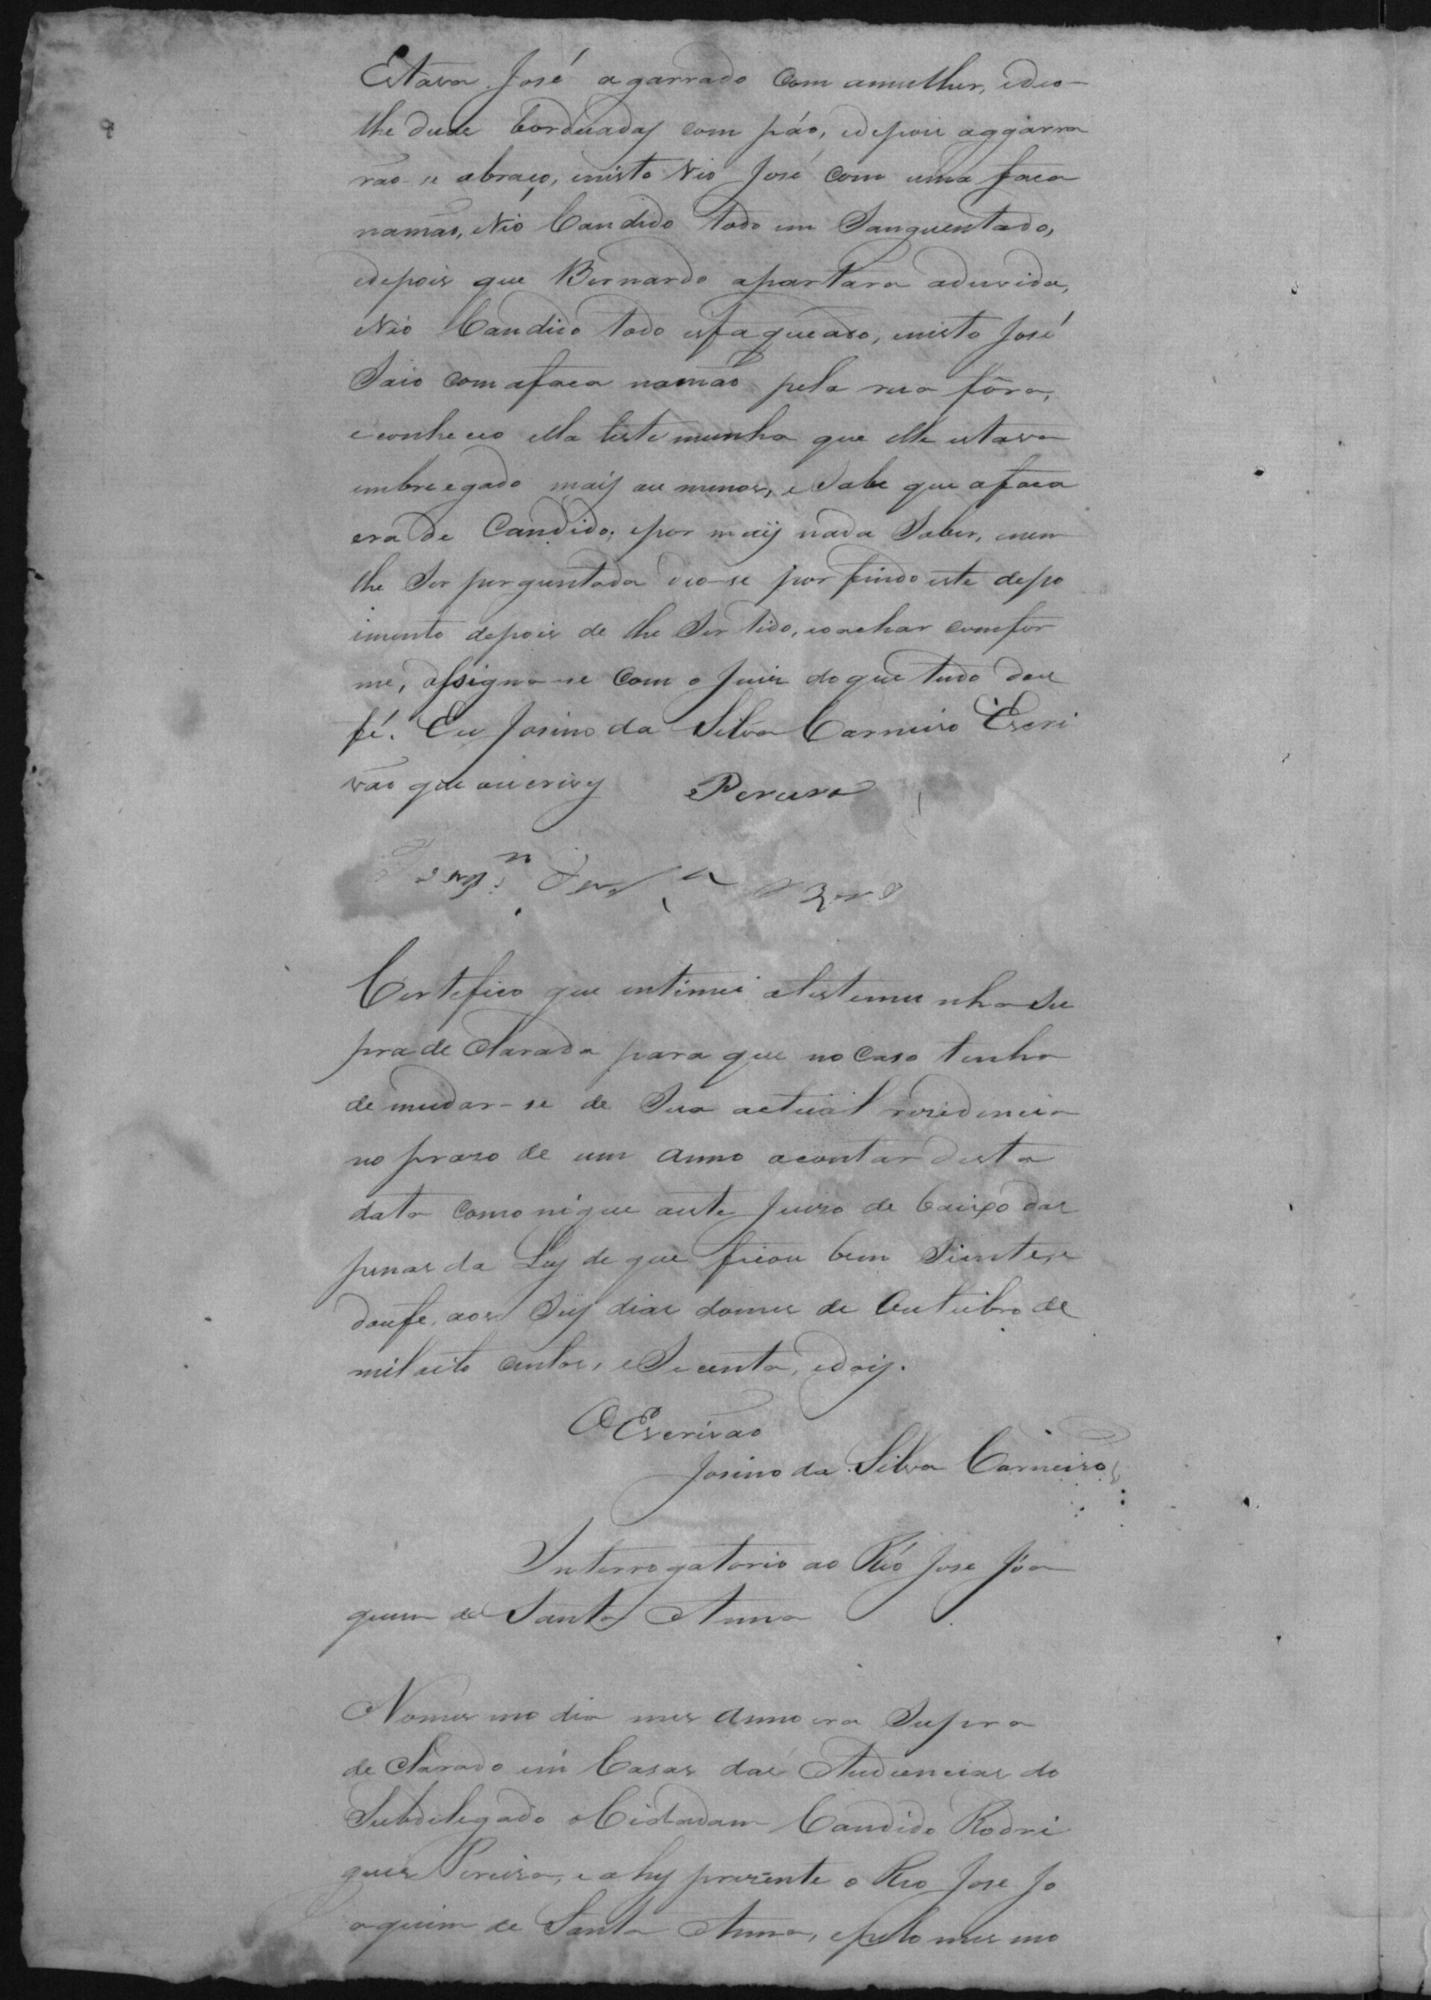 Estava José agarrado com amulher, edeo-
lhe duas borduadas com páo, edepois aggarra
rão-se abraço, enisto vio José com uma faca
namão, evio Candido todo em Sanguentado,
edepois que Bernardo apartara aduvida,
evio Candido todo esfaqueado, enisto José
Saio com afaca namão pela rua fôra,
econheceo ella testimunha que elle estava
embreegado mais au menos, e Sabe que afaca
era de Candido; epor mais nada Saber, enem
lhe Ser perguntada deo-se por findo este depo
imento depois de lhe Ser lido, eoachar comfor
me, assigna-se com o Juis doque tudo dou
fé. Eu Josino da Silva Carneiro Escri
vão que oiescrevy Pereira
Certefico que entimei atestemunha Su
pra de Clarada para que no caso tenha
demudar-se de Sua actual residencia
no praso de um anno acontar desta
data comonique aeste Juiso de baixo das
penas da Ley de que ficou bem Siente, e
doufe, aos Seis dias domes de Outubro de
mil oito centos, eSecenta, edois.
O Escrivão
Josino da Silva Carneiro
Interrogatorio ao Réo José Joa
quim de Santa Anna
Nomes mo dia mes anno era Supra
de Clarado em Casas das Audiencias do
Subdelegado o Cidadam Candido Rodri
gues Pereira, e ahy prezente o Reo Jose Jo
aquim de Santa Anna, epelo mes mo